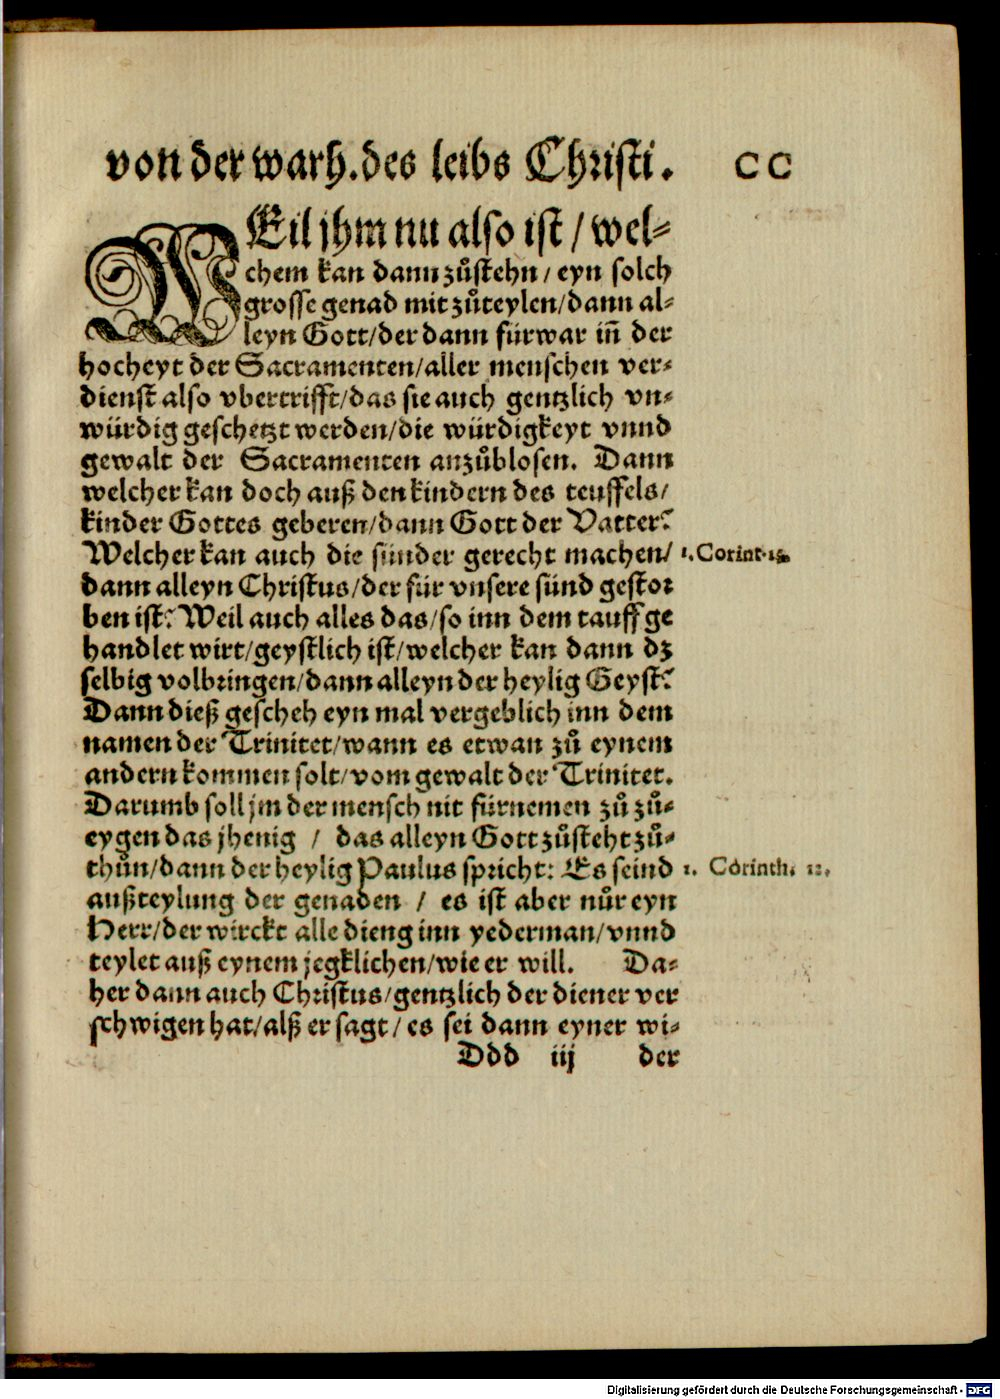 von der warh. des leibs Christi. CC
WEil jhm nu also ist / wel⸗
chem kan dann zůstehn / eyn solch
grosse genad mit zůteylen / dann al⸗
leyn Gott / der dann fürwar iñ der
hocheyt der Sacramenten / aller menschen ver⸗
dienst also vbertrifft / das sie auch gentzlich vn⸗
würdig geschetzt werden / die würdigkeyt vnnd
gewalt der Sacramenten anzůblosen. Dann
welcher kan doch auß den kindern des teuffels /
kinder Gottes geberen / dann Gott der Vatter?
Welcher kan auch die sünder gerecht machen / 1. Corint. 15.
dann alleyn Christus / der für vnsere sünd gestor
ben ist? Weil auch alles das / so inn dem tauff ge
handlet wirt / geystlich ist / welcher kan dann dz
selbig volbringen / dann alleyn der heylig Geyst?
Dann dieß gescheh eyn mal vergeblich inn dem
namen der Trinitet / wann es etwan zů eynem
andern kommen solt / vom gewalt der Trinitet.
Darumb soll jm der mensch nit fürnemen zů zů⸗
eygen das jhenig / das alleyn Gott zůsteht zů⸗
thůn / dann der heylig Paulus spricht: Es seind 1. Corinth. 12.
außteylung der genaden / es ist aber nůr eyn
Herr / der wirckt alle dieng inn yederman / vnnd
teylet auß eynem jegklichen / wie er will. Da⸗
her dann auch Christus / gentzlich der diener ver
schwigen hat / alß er sagt / es sei dann eyner wi⸗
Ddd iij der
Digitalisierung gefördert durch die Deutsche Forschungsgemeinschaft - DFG